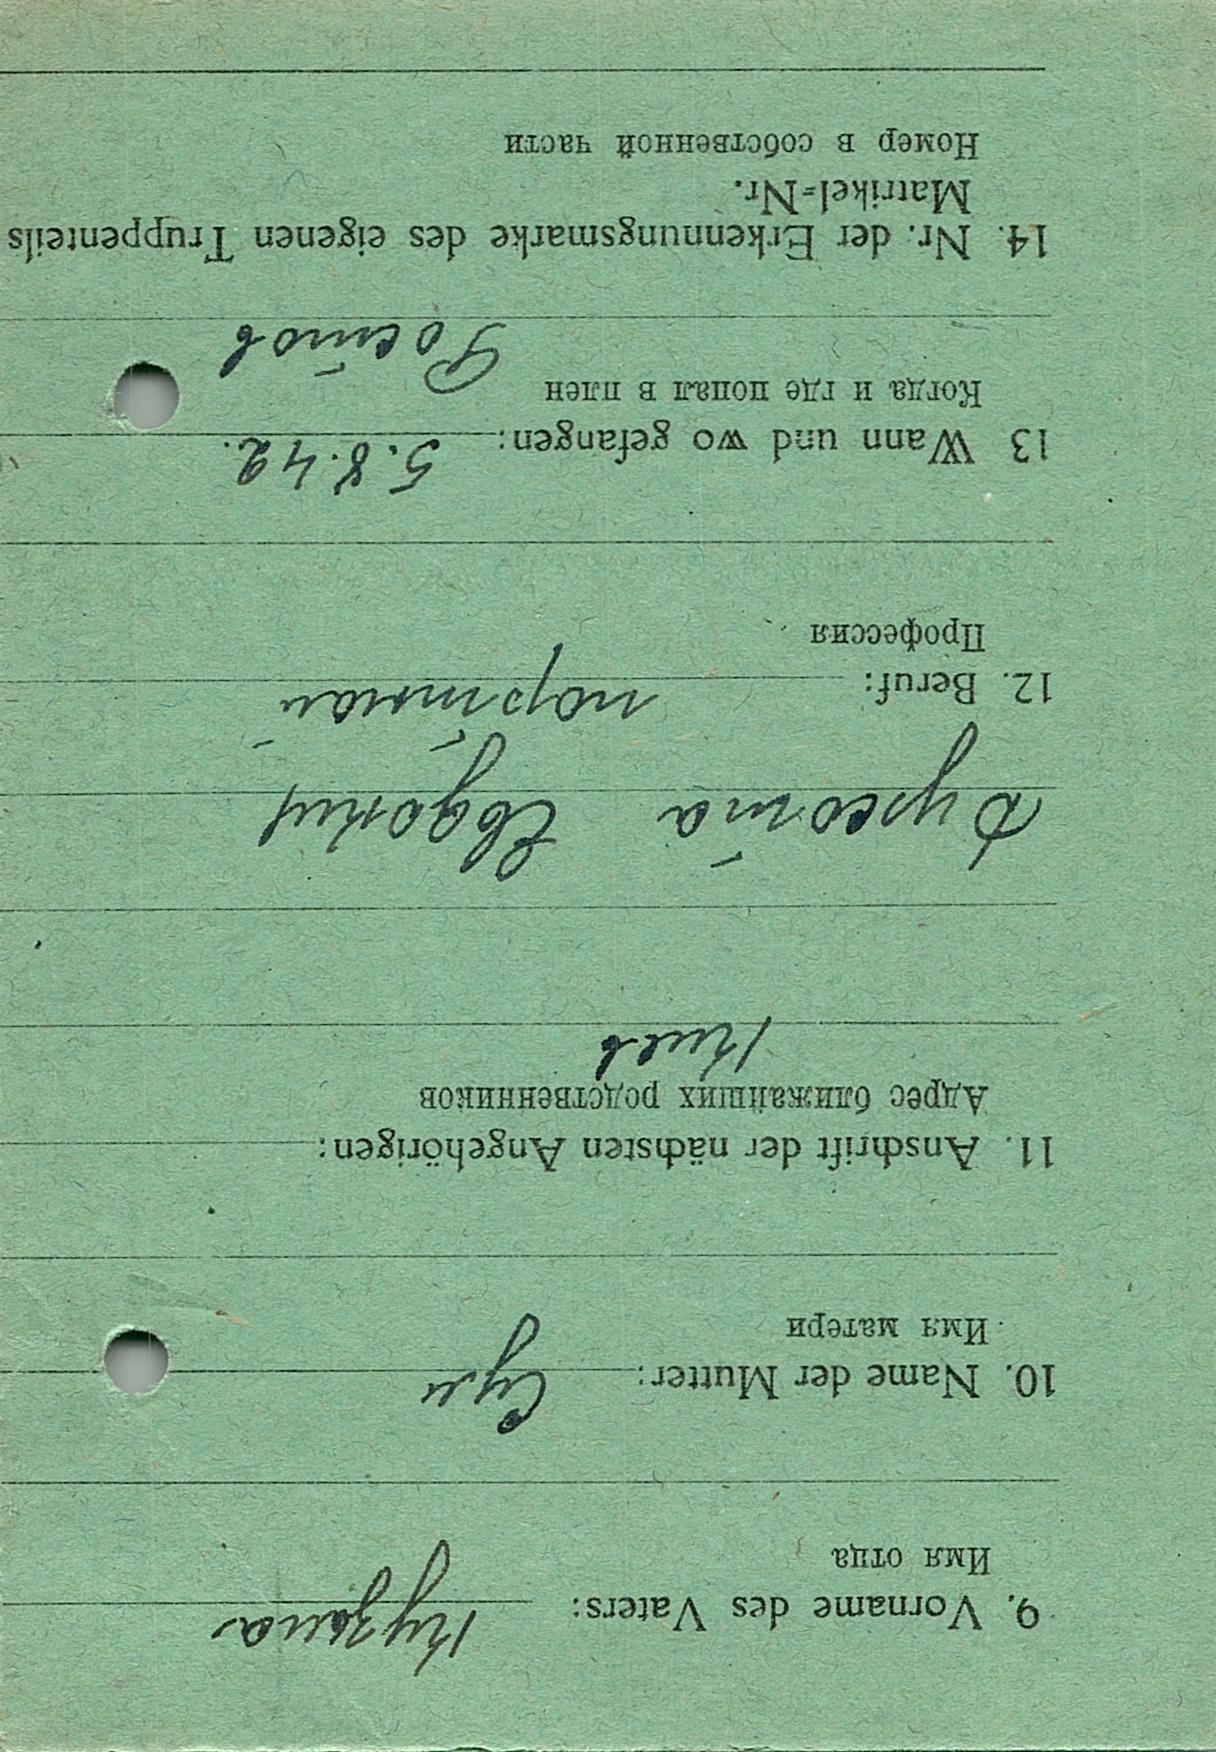 9. Vorname des Vaters: Кузьма
Имя отца
10. Name der Mutter:
Имя матери
11. Anschrift der nächsten Angehörigen:
Адрес ближайших родственников
Киев
12. Beruf: портной
Профессия
13 Wann und wo gefangen: 5.8.42.
Когда и где попал в плен
Ростов
14. Nr. der Erkennungsmarke des eigenen Truppenteils
Matrikel-Nr.
Номер в собственной части